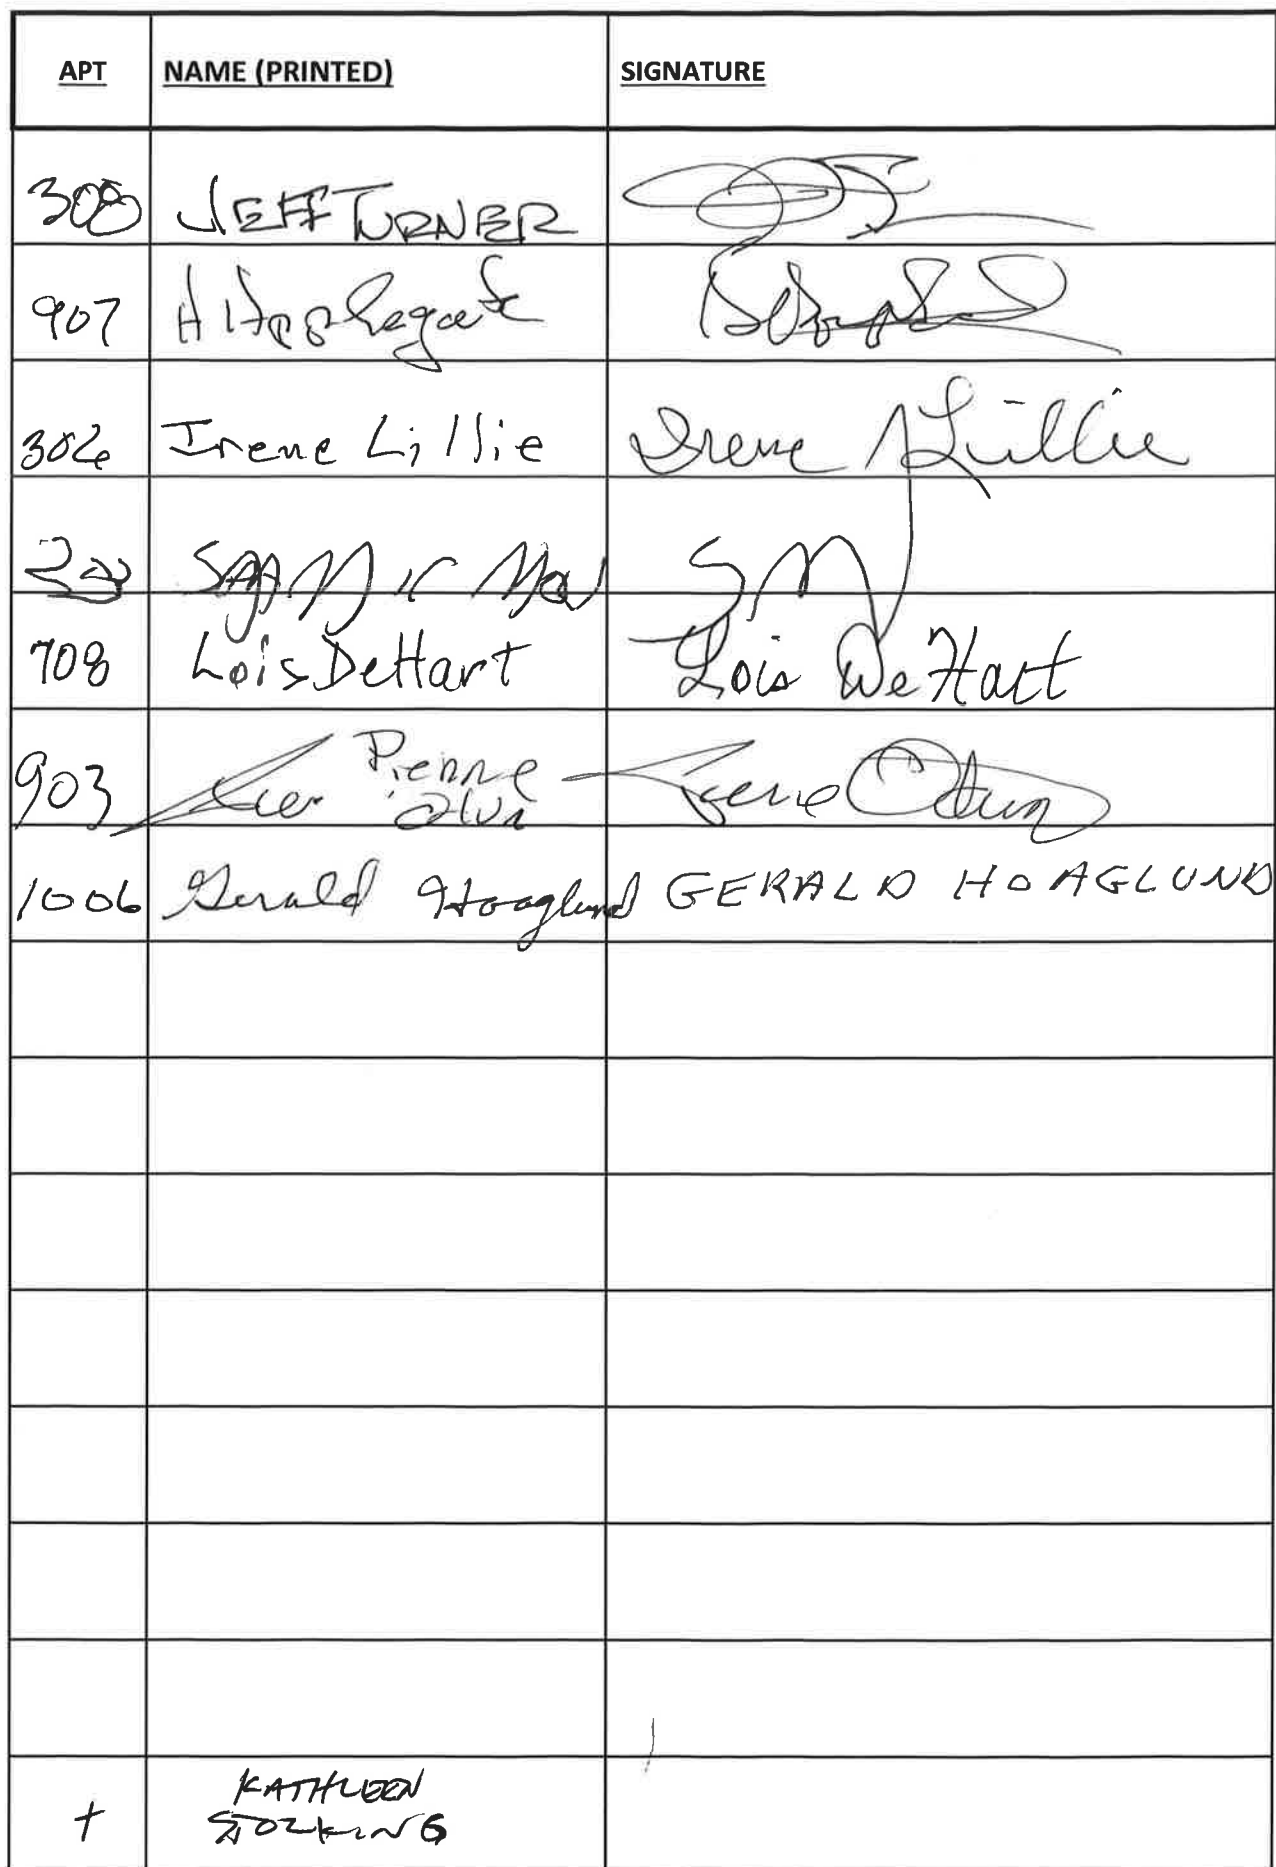 APT NAME (PRINTED) SIGNATURE
308 JEFF TURNER
907 H Applegate
306 Irene Lillie Irene Lillie
708 Lois DeHart Lois DeHart
903 Pierre
1006 Gerald Hoaglund GERALD HOAGLUND
+ KATHLEEN
STOCKING